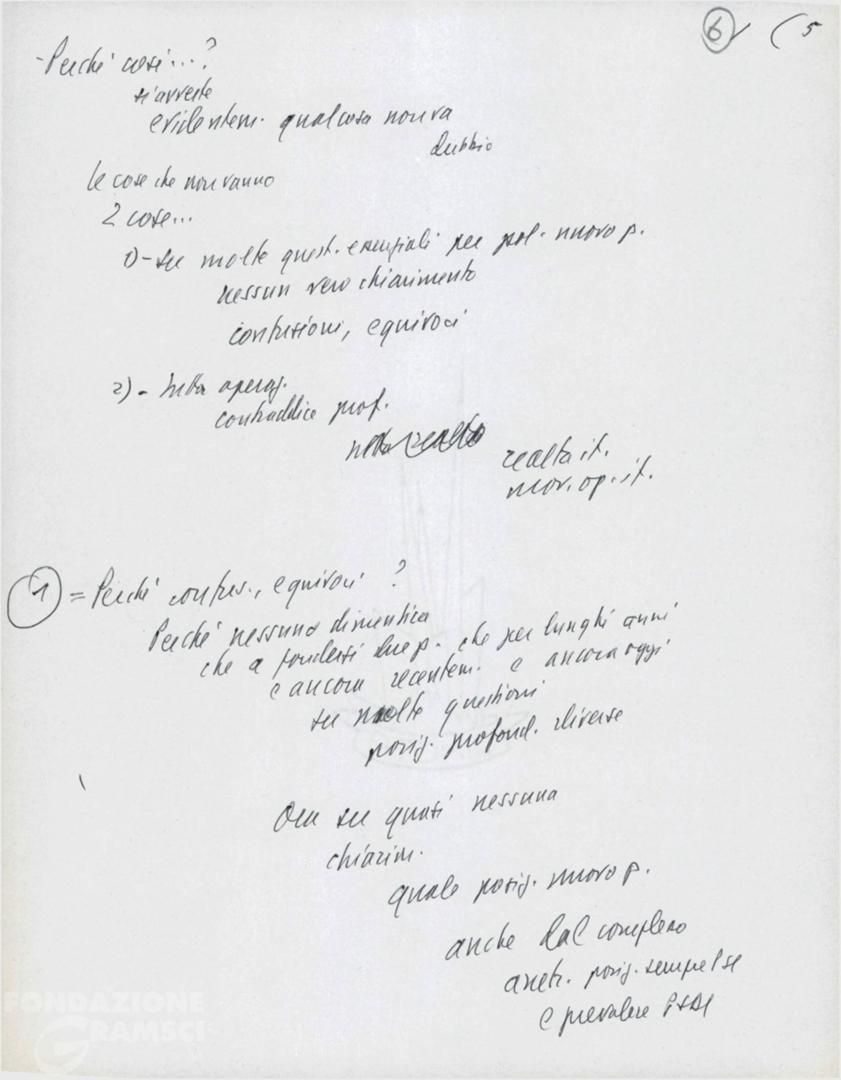 6 ( 5
- Perché così...?
si avverte
evidentem. qualcosa non va
dubbio
le cose che non vanno
2 cose...
1) - su molte quest. essenziali per pol. nuovo p.
nessun vero chiarimento
confusioni, equivoci
2) - tutta operaz.
contraddice prof.
nella realtà
realtà it.
mov. op. it.
1 = Perché confus., equivoci ?
Perché nessuno dimentica
che a fondersi due p. che per lunghi anni
e ancora recentem. e ancora oggi
su molte questioni
posiz. profond. diverse
Ora su quasi nessuna
chiarim.
quale posiz. nuovo p.
anche dal complesso
posiz. sempre PSI
e prevalere PSDI
FONDAZIONE
GRAMSCI